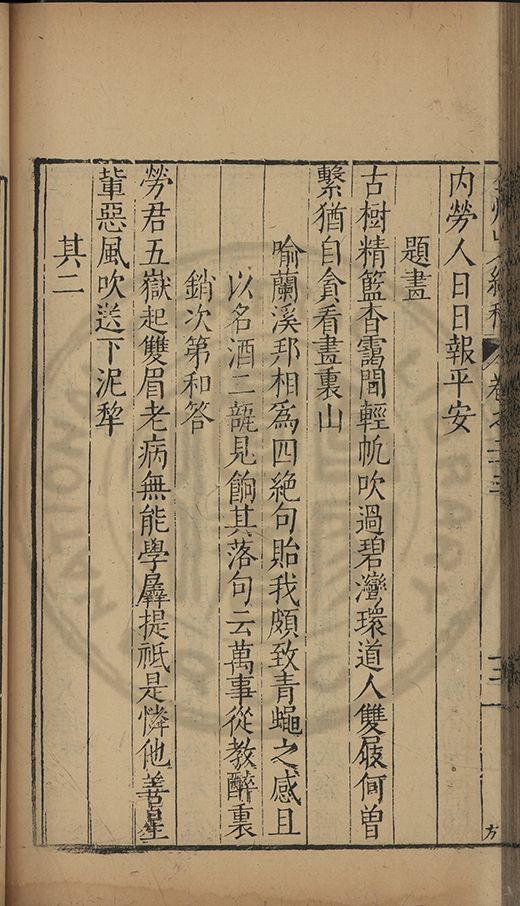 內勞人日日報平安
題畫
古樹精籃杳靄間輕帆吹過碧灣環道人雙屐何曾
繫猶自貪看畫裏山
喻蘭溪邦相爲四絶句貽我頗致青蠅之感且
以名酒二瓿見餉其落句云萬事從教醉裏
銷次第和答
勞君五嶽起雙眉老病無能學羼提祗是憐他善星
輩惡風吹送下泥犂
其二